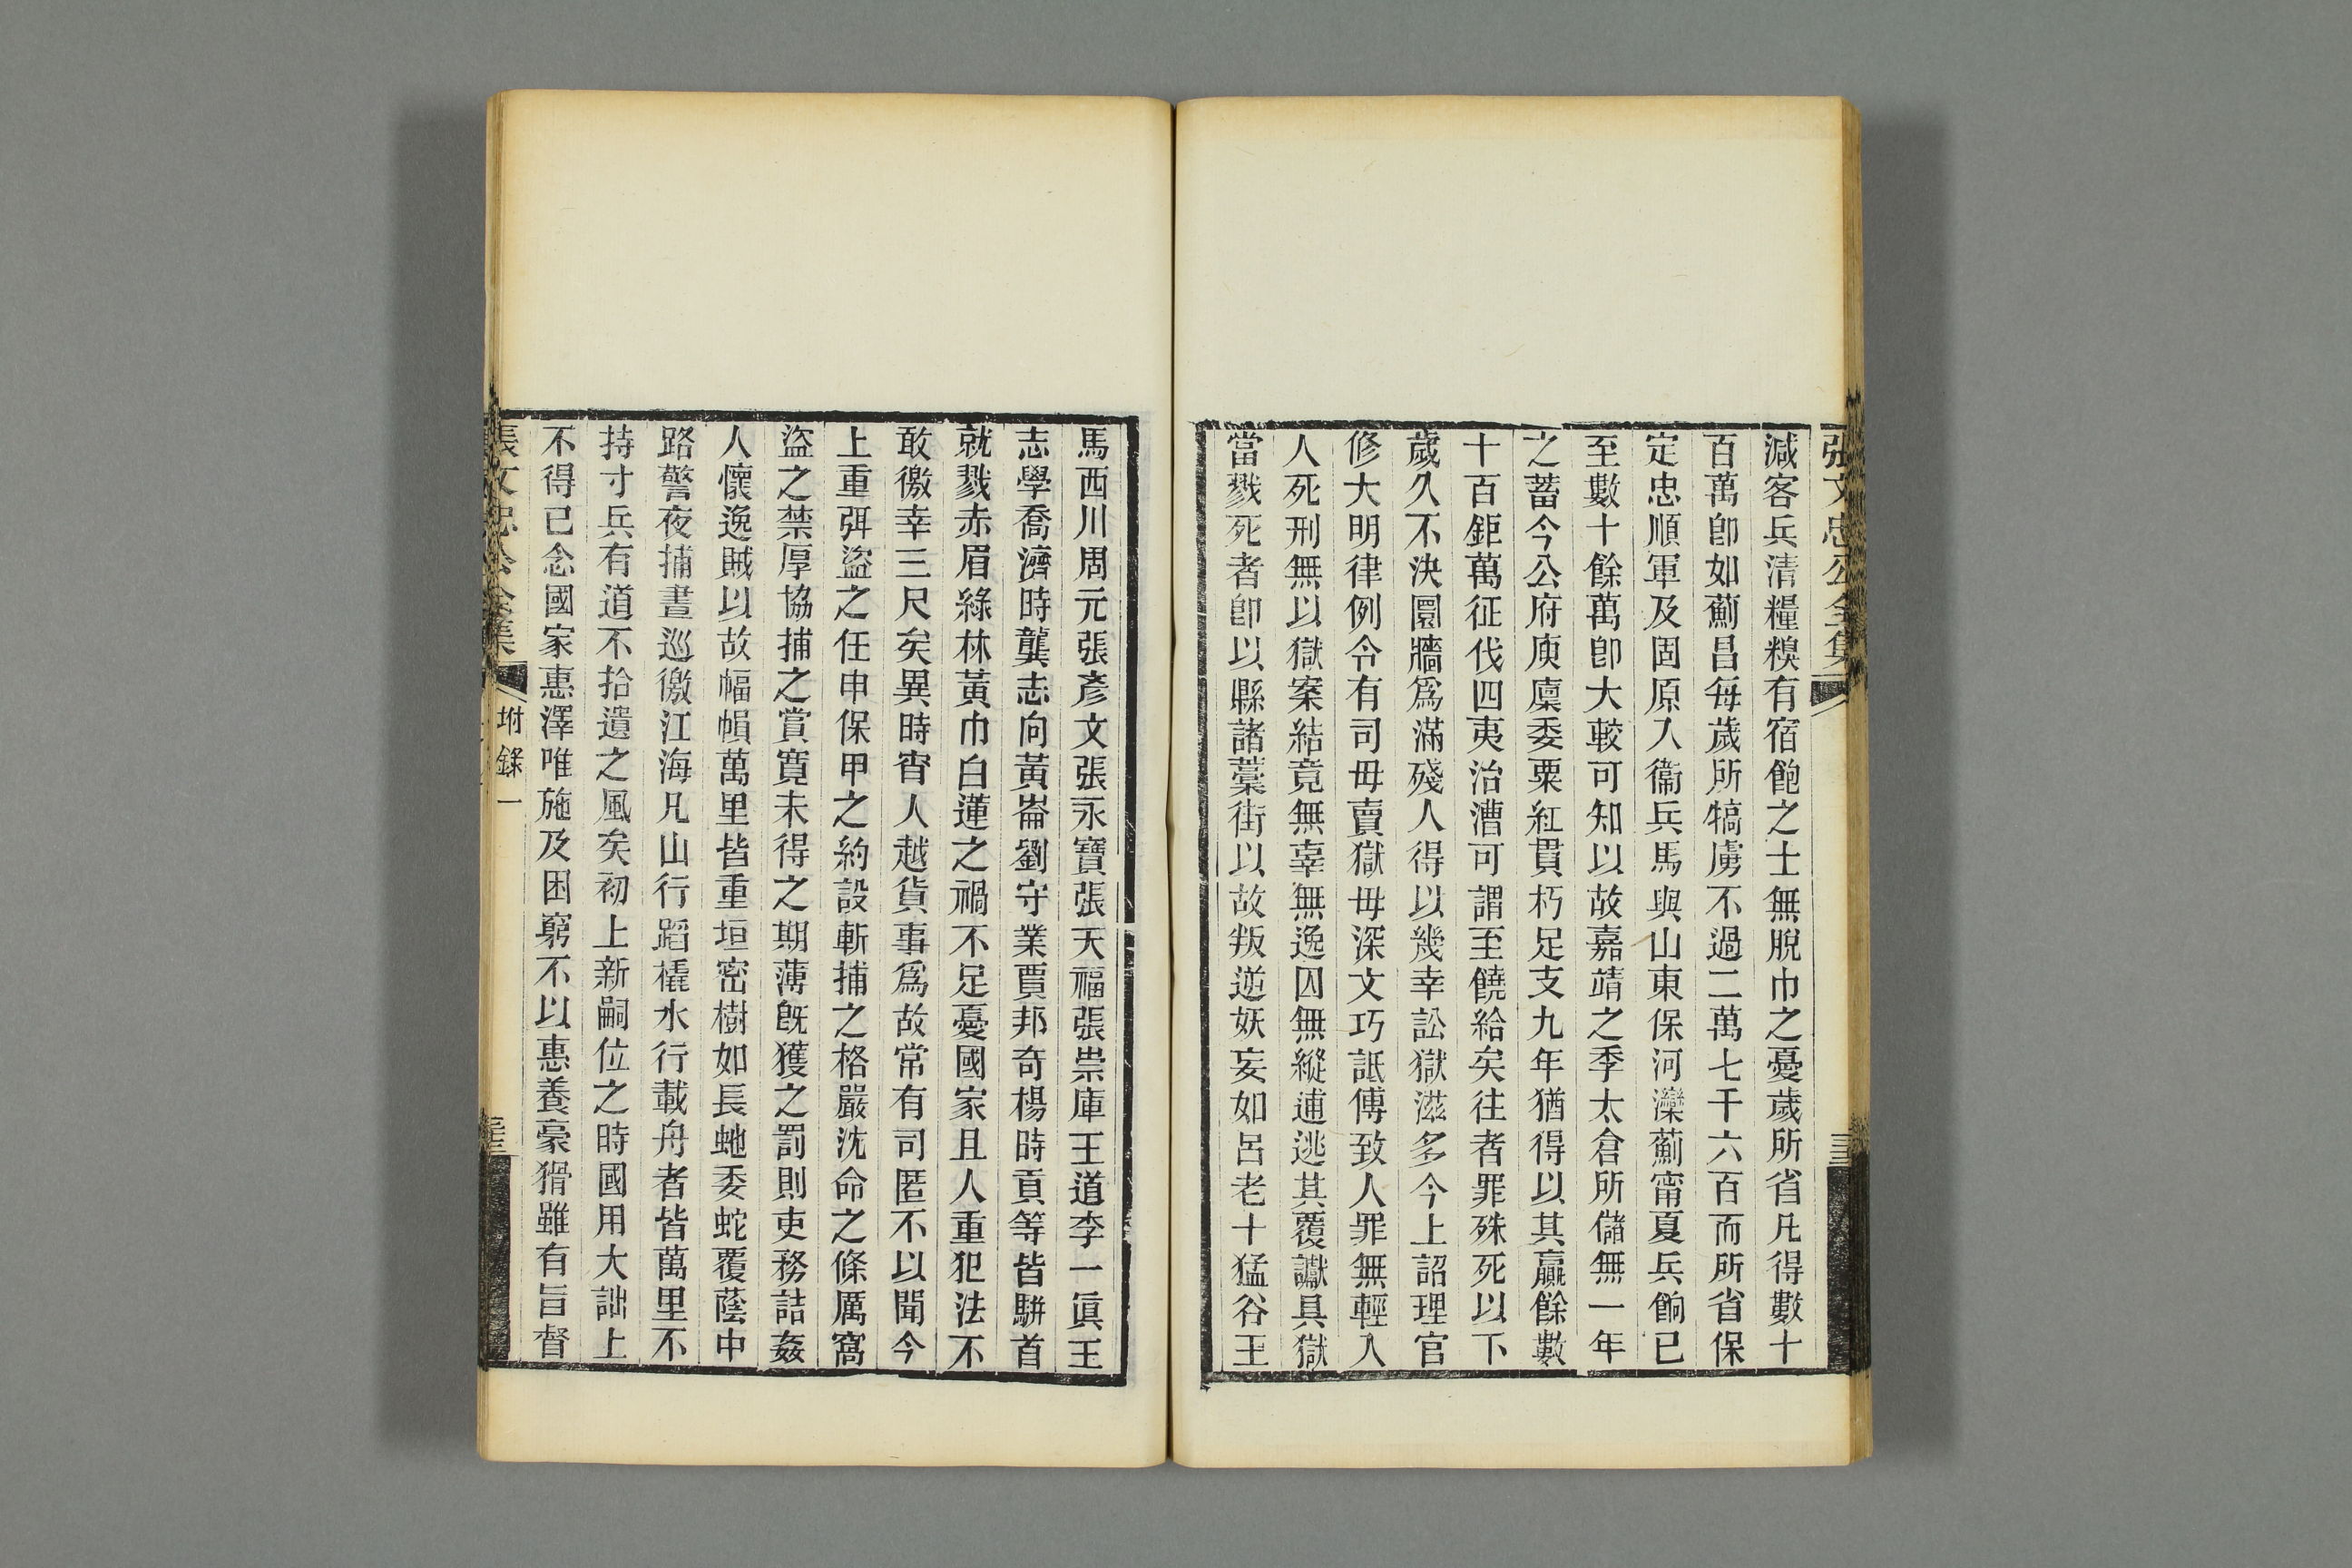 張文忠公全集
減客兵清糧糗有宿飽之士無脫巾之憂歲所省凡得數十
百萬卽如薊昌每歲所犒虜不過二萬七千六百而所省保
定忠順軍及固原入衞兵馬與山東保河灤薊甯夏兵餉已
至數十餘萬卽大較可知以故嘉靖之季太倉所儲無一年
之蓄今公府庾廩委粟紅貫朽足支九年猶得以其贏餘數
十百鉅萬征伐四夷治漕可謂至饒給矣往者罪殊死以下
歲久不決圜牆爲滿殘人得以幾幸訟獄滋多今上詔理官
修大明律例令有司毋賣獄毋深文巧詆傅致人罪無輕入
人死刑無以獄案結竟無辜無逸囚無縱逋逃其覆讞具獄
當戮死者卽以縣諸藁街以故叛逆妖妄如呂老十猛谷王
馬西川周元張彥文張永寶張天福張祟庫王道李一眞王
志學喬濟時龔志向黃崙劉守業賈邦奇楊時貢等皆駢首
就戮赤眉綠林黃巾白蓮之禍不足憂國家且人重犯法不
敢徼幸三尺矣異時宵人越貨事爲故常有司匿不以聞今
上重弭盜之任申保甲之約設斬捕之格嚴沈命之條厲窩
盜之禁厚協捕之賞寬未得之期薄旣獲之罰則吏務詰姦
人懷逸賊以故幅幀萬里皆重垣密樹如長虵委蛇覆蔭中
路警夜捕晝巡徼江海凡山行蹈橇水行載舟者皆萬里不
持寸兵有道不拾遺之風矣初上新嗣位之時國用大詘上
不得已念國家惠澤唯施及困窮不以惠養豪猾雖有旨督
張文忠公全集
附錄一